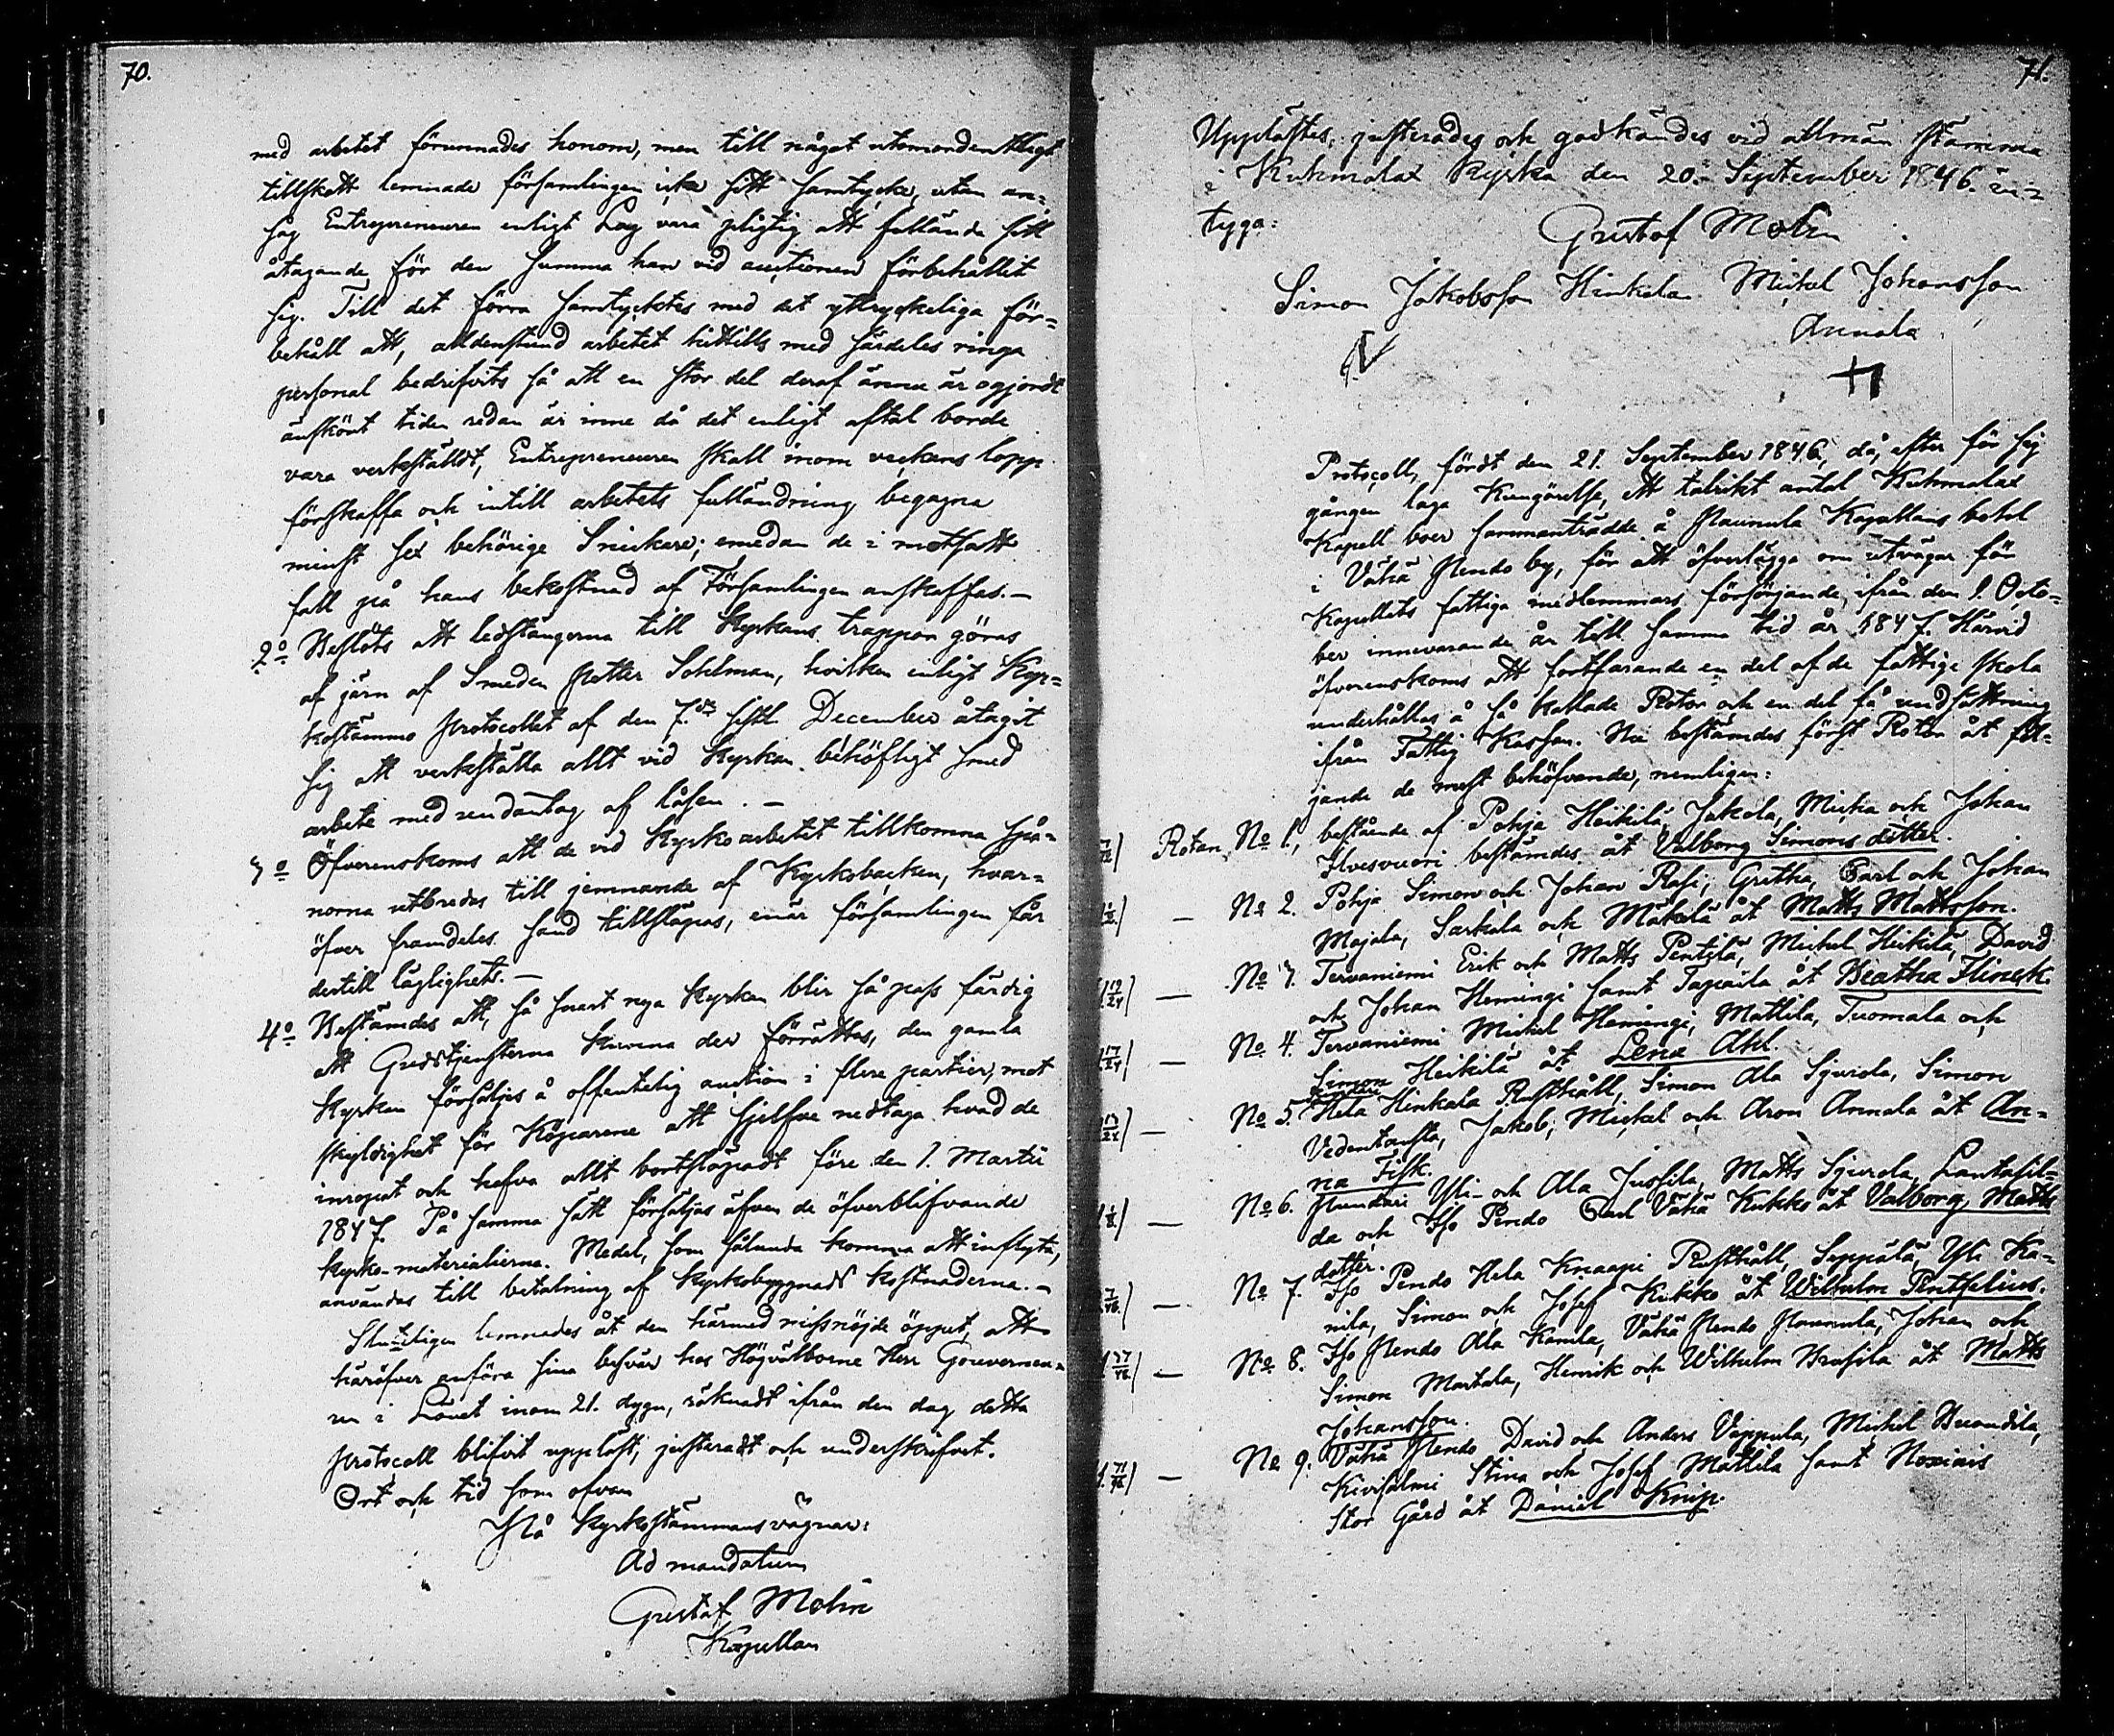 70.
med arbetet förunnades honom, men till något utomordentligt
tillskott lemnade församlingen icke sitt samtycke, utan an-
såg Entrepreneuren enligt Lag vara pligtig att fullända sitt
åtagande för den summa han vid auctionen förbehållit
sig. Till det förra samtycktes med det yttryckeliga för-
behåll att, alldenstund arbetet hittills med särdeles ringa
personal bedrifvits så att en stor del deraf ännu är ogjordt
änskönt tiden redan är inne då det enligt aftal borde
vara verkställdt, Entrepreneuren skall inom veckans lopp
förskaffa och intill arbetets fulländning begagna
minst sex behörige Snickare; emedan de i motsatt
fall på hans bekostnad af Församlingen anskaffas. —
2:o Beslöts att ledstängerna till Kyrkans trappor göras
af järn af Smeden Petter Sohlman, hvilken enligt Kyr-
kostämmo Protocollet af den 7:de sistl. December åtagit
sig att verkställa allt vid Kyrkan behöfligt smed
arbete med undantag af låsen. —
3:o Öfverenskoms att de vid Kyrkoarbetet tillkomna spå-
norna utbredes till jemnande af Kyrkobacken, hvar-
öfver framdeles sand tillsläpas, enär församlingen får
dertill läglighets. —
4:o Bestämdes att, så snart nya Kyrkan blir så pass färdig
att Gudstjensterna kunna der förrättas, den gamla
Kyrkan försäljes å offentelig auction i flere partier, mot
skyldighet för Köparene att sjelfve nedtaga hvad de
inropat och hafva allt bortsläpadt före den 1. Martii
1847. På samma sätt försäljas äfven de öfverblifvande
kyrko-materialierna. Medel, som sålunda komma att inflyta,
användas till betalning af Kyrkobyggnads kostnaderna. —
Sluteligen lemnades åt den härmed missnöjde öppet, att
häröfver anföra sina besvär hos Högvälborne Herr Gouverneu-
ren i Länet inom 21. dygn, räknadt ifrån den dag detta
Protocoll blifvit uppläst, justeradt och underskrifvet.
Ort och tid som ofvan
På Kyrkostämmans vägnar:
Ad mandatum
Gustaf Molin
Kapellan
71.
Upplästes, justerades och godkändes vid allmän stämma
i Kuhmalax Kyrka den 20. September 1846. in-
tyga:
Gustaf Molin
Simon Jakobsson Hinkala Mickel Johansson
Annala
Protocoll, fördt den 21. September 1846, då, efter för sig
gången laga Kungörelse, ett talrikt antal Kuhmalax
Kapell boer sammanträdde å Naunula Kapellans bohl
i Vähä Pendo by, för att öfverlägga om utvägar för
Kapellets fattiga medlemmars försörjande, ifrån den 1. Octo-
ber innevarande år till samma tid år 1847. Härvid
öfverenskoms att fortfarande en del af de fattige skola
underhållas å så kallade Rotor och en del få undsättning
ifrån Fattig Kassan. Nu bestämdes först Rotar åt föl-
jande de mest behöfvande, nemligen:
Rotan No 1, bestående af Pohja Heikilä, Jakola, Micka och Johan
Ilvesvuori bestämdes åt Valborg Simons dotter.
— No 2. Pohja Simon och Johan Rasi, Gretha, Carl och Johan
Majala, Sarkala och Mäkelä åt Matts Mattsson.
— No 3. Tervaniemi Erik och Matts Pentilä, Mickel Heikilä, David
och Johan Hemingi samt Tapiaila åt Beatha Flinck.
— No 4. Tervaniemi Mickel Hemingi, Mattila, Tuomala och
Simon Heikilä åt Lena Ahl.
— No 5. Hela Hinkala Rusthåll, Simon Ala Sgurola, Simon
Vedentausta, Jakob, Mickel och Aron Annala åt An-
na Fisk.
— No 6. Yli- och Ala Jussila, Matts Sgurola, Lautasil-
da och Iso Pendo Carl Vähä Kukko åt Valborg Matts
dotter.
— No 7. Iso Pendo Hela Knaapi Rusthåll, Seppälä, Yli Ka-
nila, Simon och Josef Kukko åt Wilhelm Pentzelius.
— No 8. Iso Pendo Ala Kanila, Vähä Pendo Naunula, Johan och
Simon Martala, Henrik och Wilhelm Brusila åt Matts
Johansson.
— No 9. Vähä Pendo David och Anders Vappula, Mickel Buandila,
Kivisalmi Stina och Josef Mattila samt Noxiais
Stor Gård åt Daniel Knip.